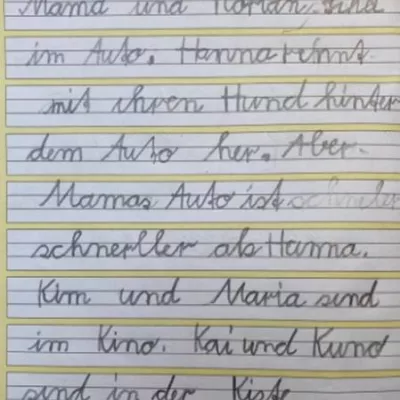 Mama und Florian sind
im Auto. Hanna rennt
mit ihren Hund hinter
dem Auto her. Aber
Mamas Auto ist schneller
schnerller als Hanna.
Kim und Maria sind
im Kino. Kai und Kuno
sind in der Kiste